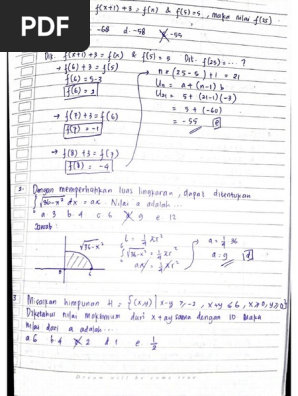 PDF
f(x+1)+3 = f(n) & f(5)=5, maka nilai f(25)
-68 d. -58 -55
Dik. f(x+1)+3 = f(n) & f(5)=5 Dit. f(25) = ... ?
→ f(6)+3 = f(5)
f(6) = 5-3
f(6) = 2
→ f(7)+3 = f(6)
f(7) = -1
→ f(8)+3 = f(7)
f(8) = -4
→ n = (25-5)+1 = 21
Un = a+(n-1)b
U21 = 5+(21-1)(-3)
= 5+(-60)
= -55 e
2. Dengan memperhatikan luas lingkaran, dapat ditentukan
√36-x² dx = aπ. Nilai a adalah ...
a 3 b 4 c 6 d 9 e 12
Jawab:
√36-x²
L = 1/4 πr²
√36-x² = 1/4 πr²
aπ = 1/4 πr²
→ a = 1/4 36
a = 9 d
3 Misalkan himpunan H = {(x,y) | x-y ≥ -2, x+y ≤ 6, x≥0, y≥0}
Diketahui nilai maksimum dari x+ay sama dengan 10 maka
nilai dari a adalah ...
a 6 b 4 2 d 1 e 1/2
Dream will be come true